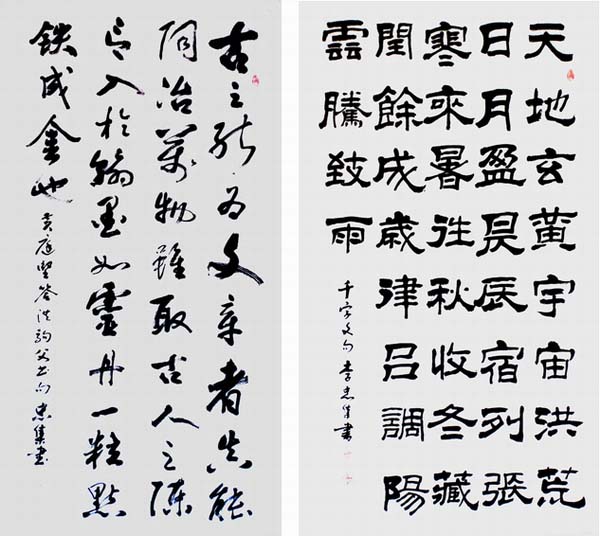 天地玄黃宇宙洪荒
日月盈昃辰宿列張
寒來暑往秋收冬藏
閏餘成歲律呂調陽
雲騰致雨
千字文句 李忠集書
古之能為文章者真能
陶冶萬物雖取古人之陳
言入於翰墨如靈丹一粒點
鉄成金也
黄庭堅答洪駒父書句 忠集書